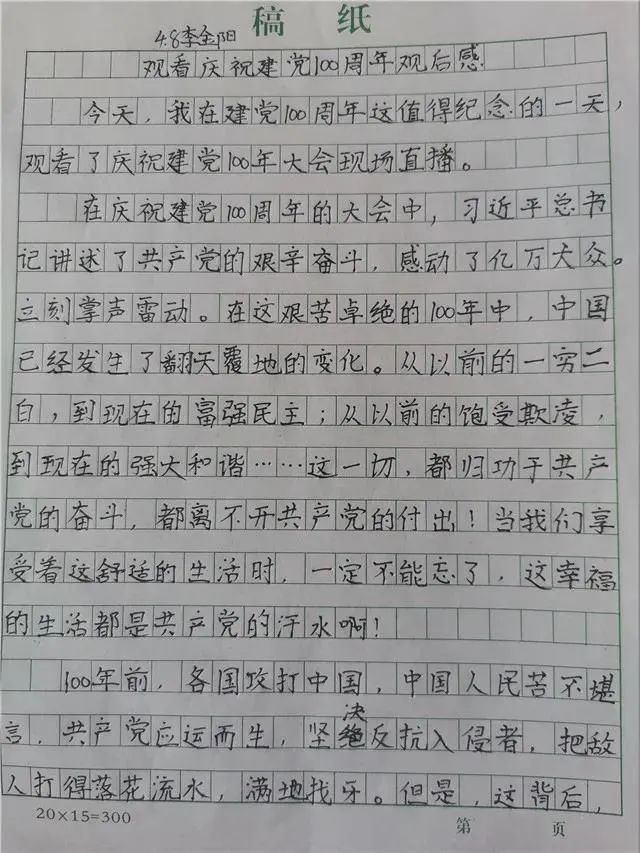 稿 纸
4.8李金阳
观看庆祝建党100周年观后感
今天，我在建党100周年这值得纪念的一天，
观看了庆祝建党100年大会现场直播。
在庆祝建党100周年的大会中，习近平总书
记讲述了共产党的艰辛奋斗，感动了亿万大众。
立刻掌声雷动。在这艰苦卓绝的100年中，中国
已经发生了翻天覆地的变化。从以前的一穷二
白，到现在的富强民主；从以前的饱受欺凌，
到现在的强大和谐……这一切，都归功于共产
党的奋斗，都离不开共产党的付出！当我们享
受着这舒适的生活时，一定不能忘了，这幸福
的生活都是共产党的汗水啊！
100年前，各国攻打中国，中国人民苦不堪
言，共产党应运而生，坚决绝反抗入侵者，把敌
人打得落花流水，满地找牙。但是，这背后，
20×15=300
第 页